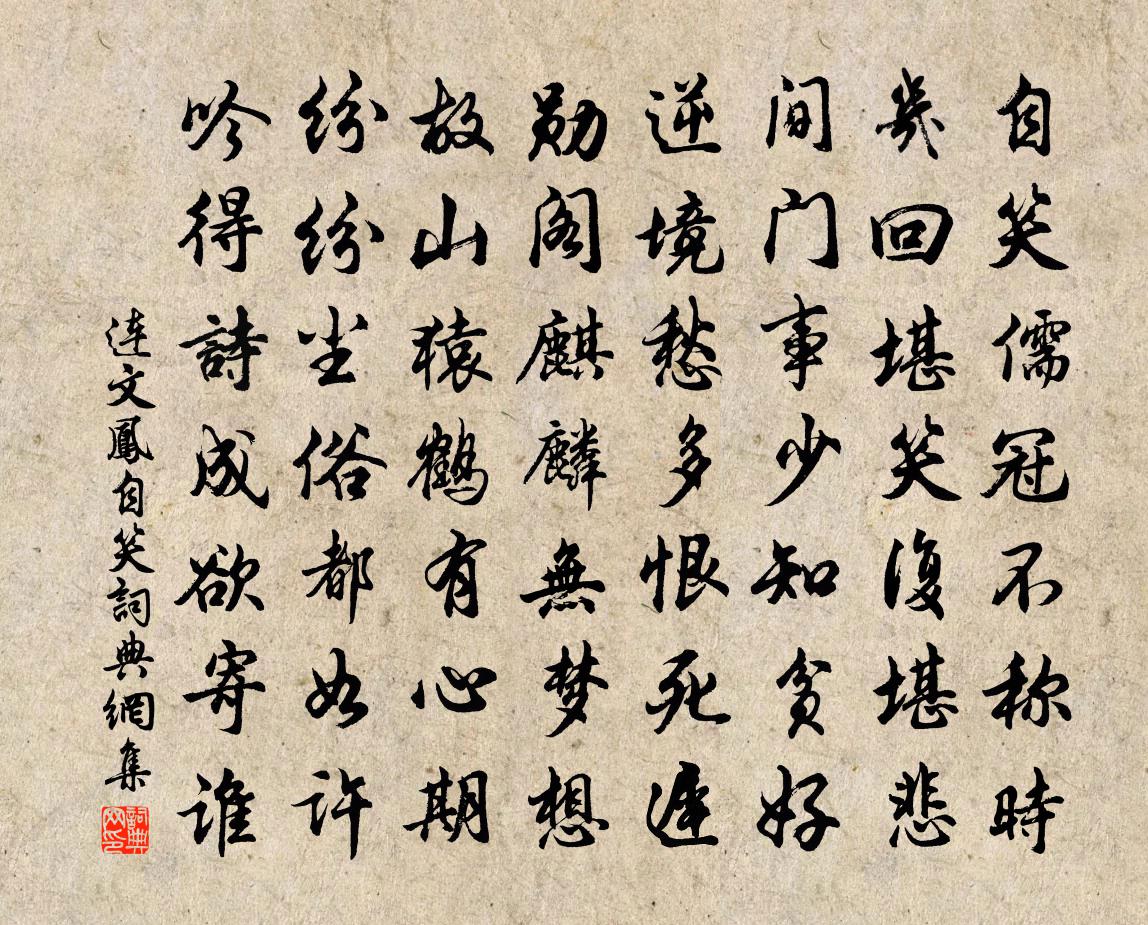 自笑儒冠不称時
幾回堪笑復堪悲
间门事少知貧好
逆境愁多恨死遲
勋阁麒麟無梦想
故山猿鶴有心期
纷纷尘俗都如许
吟得詩成欲寄谁
连文鳳自笑詞典網集
詞典网印